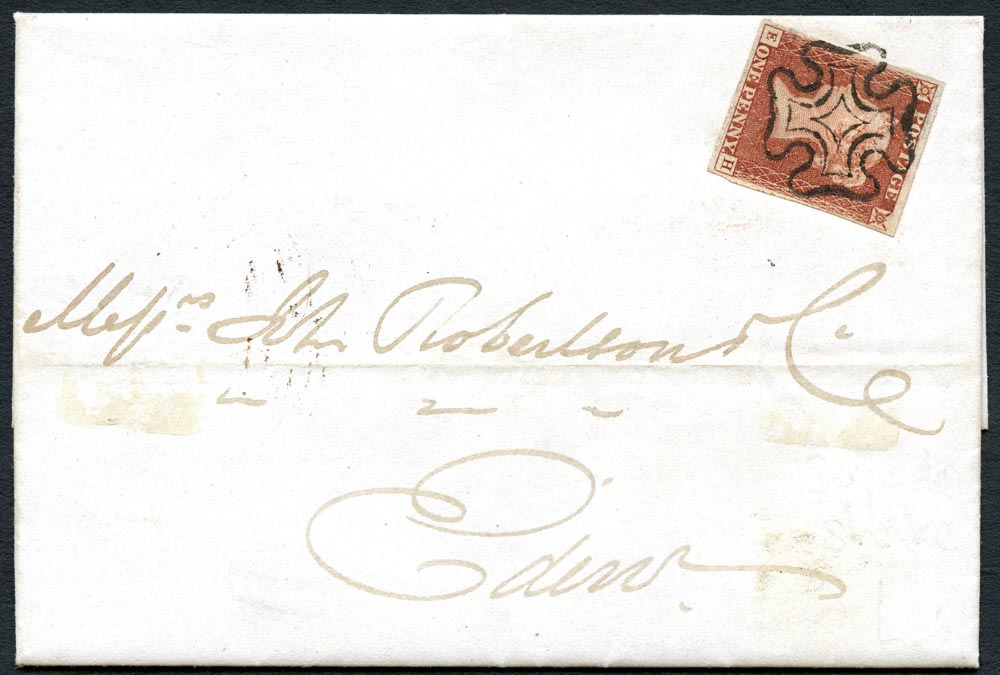 POSTAGE
ONE PENNY.
E H
Messrs John Robertson & Co
Edinr